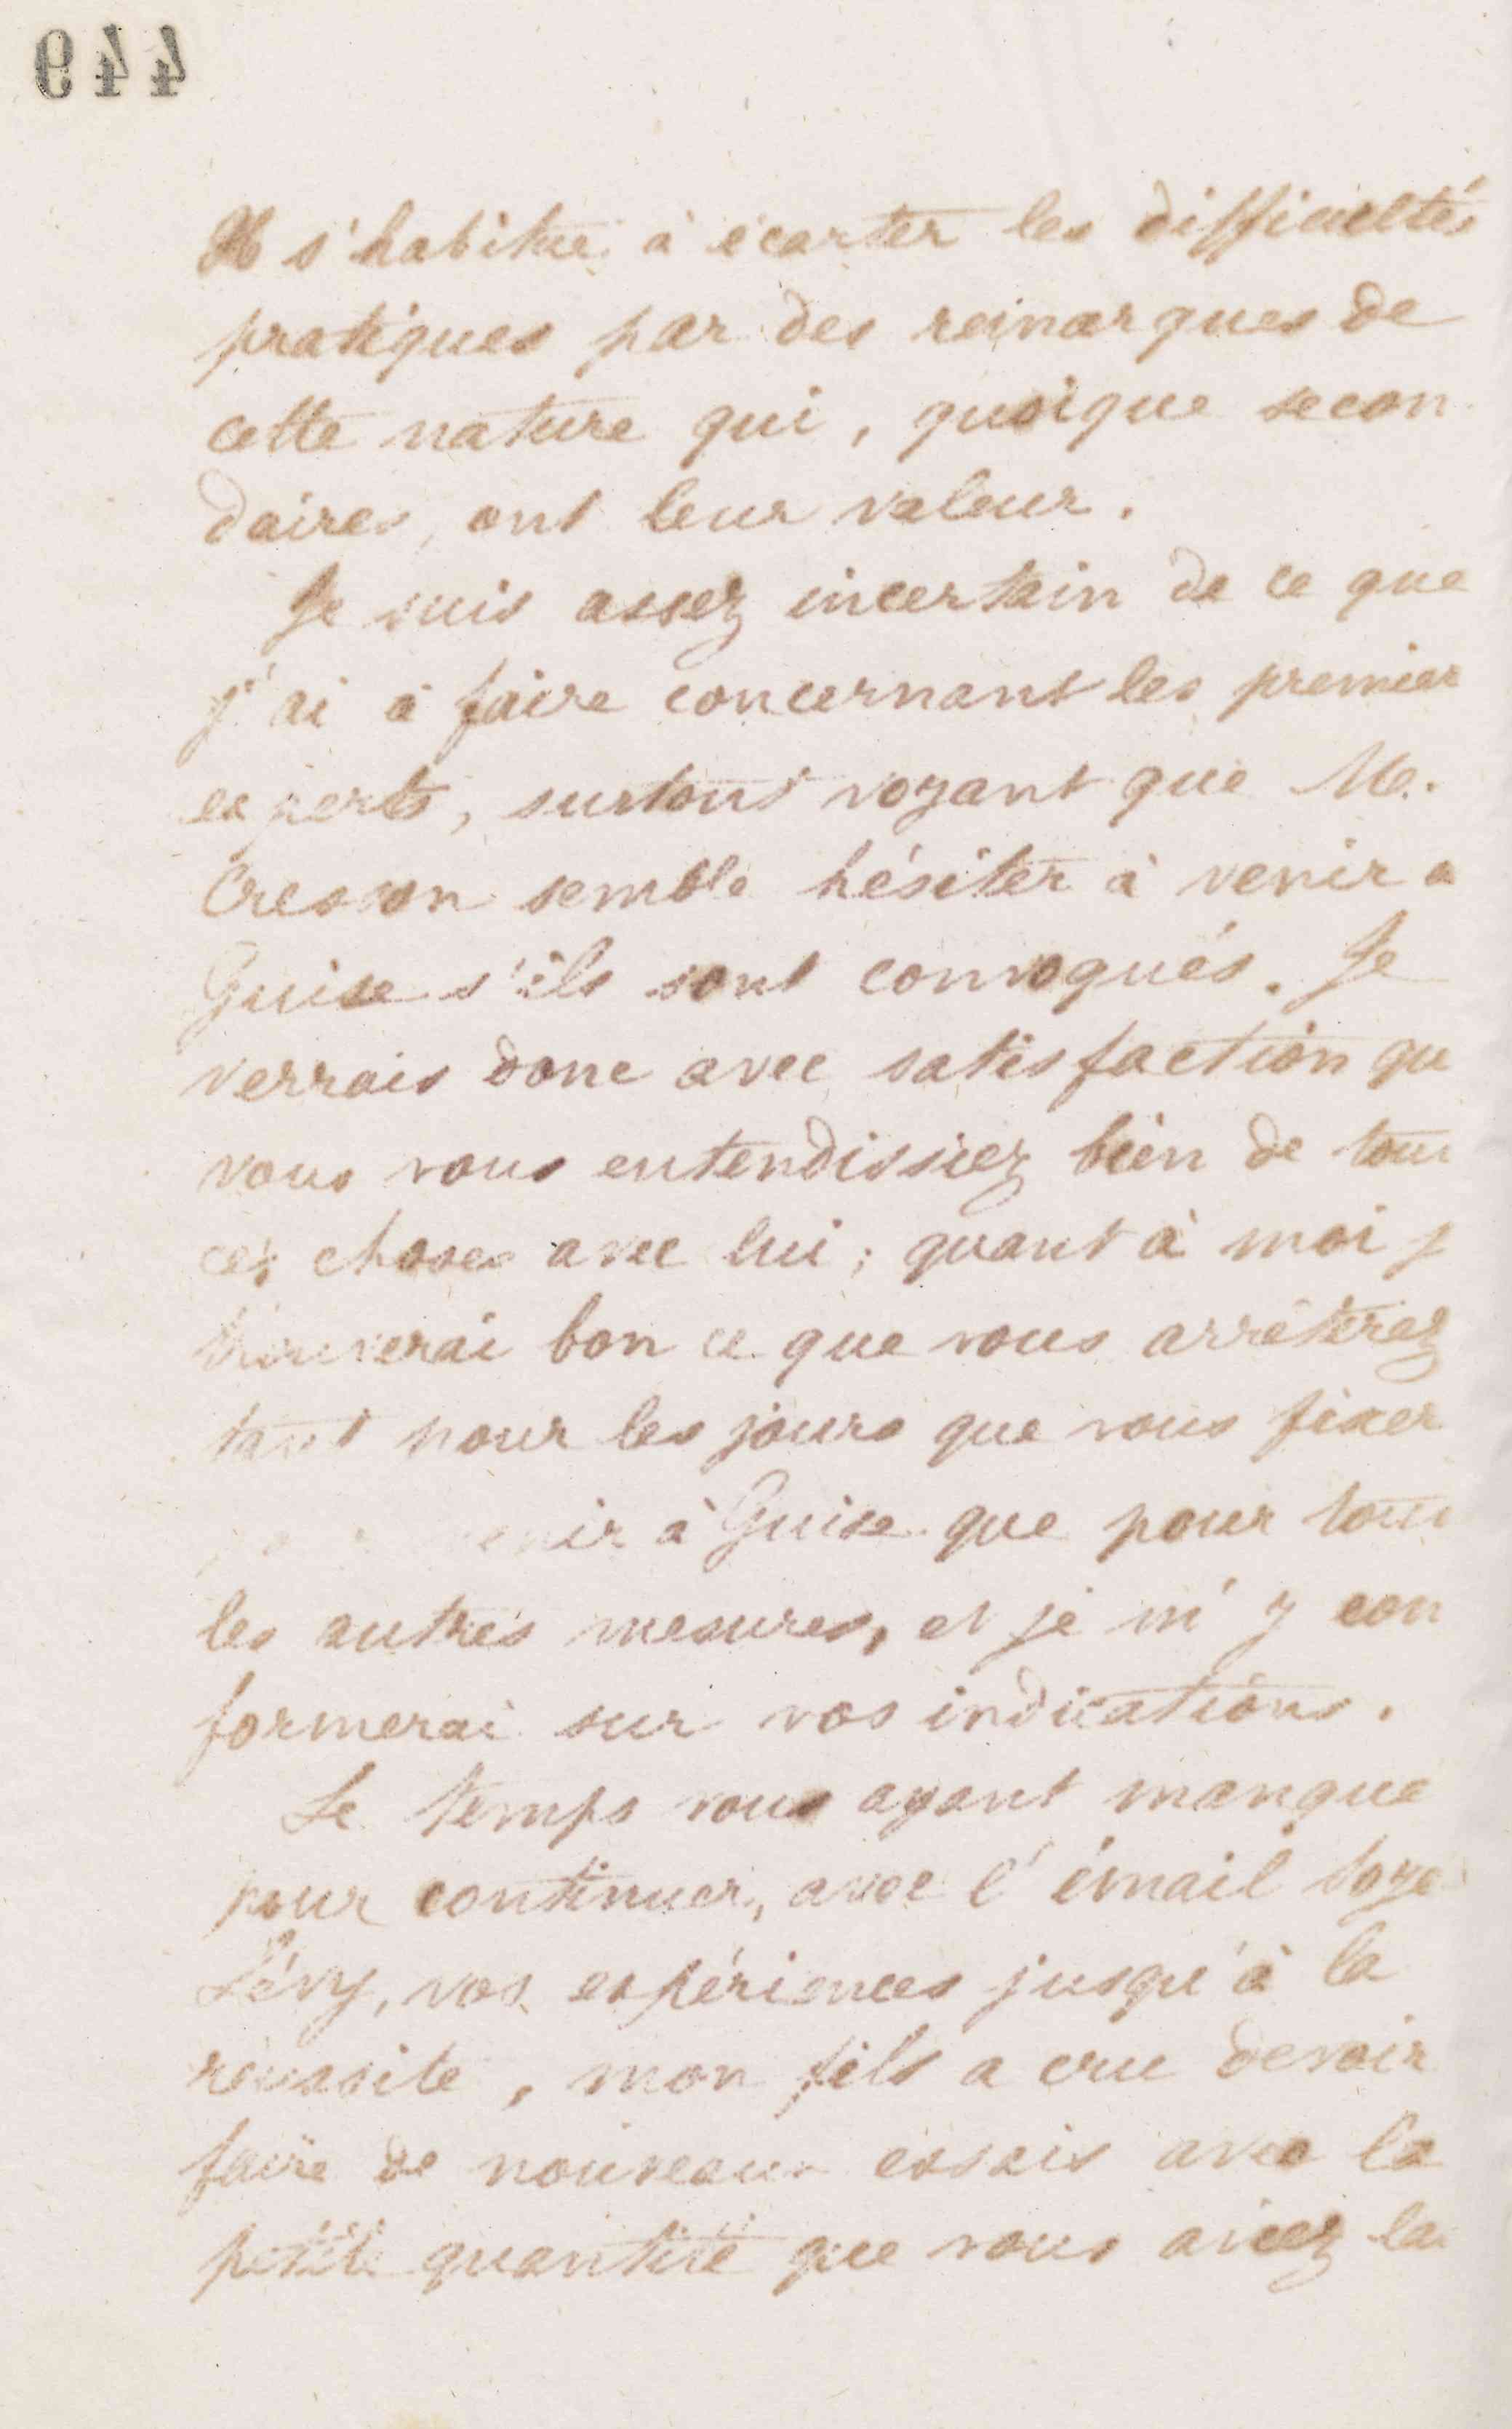 449
Il s'habitue à écarter les difficultés
pratiques par des remarques de
cette nature qui, quoique secon
daires, ont leur valeur.
Je suis assez incertain de ce que
j'ai à faire concernant les premier
experts, surtout voyant que Me.
Cresson semble hésiter à venir a
Guise s'ils sont convoqués. Je
verrais donc avec satisfaction qu
vous vous entendissiez bien de tou
ces choses avec lui; quant à moi j
trouverai bon ce que vous arrêterez
tant pour les jours que vous fixer
venir à Guise que pour tou
les autres mesures, et je m'y con
formerai sur vos indications.
Le temps vous ayant manqué
pour continuer, avec l'émail
Lévy, vos expériences jusqu'à la
réussite, mon fils a cru devoir
faire de nouveaux essais avec la
petite quantité que vous aviez la